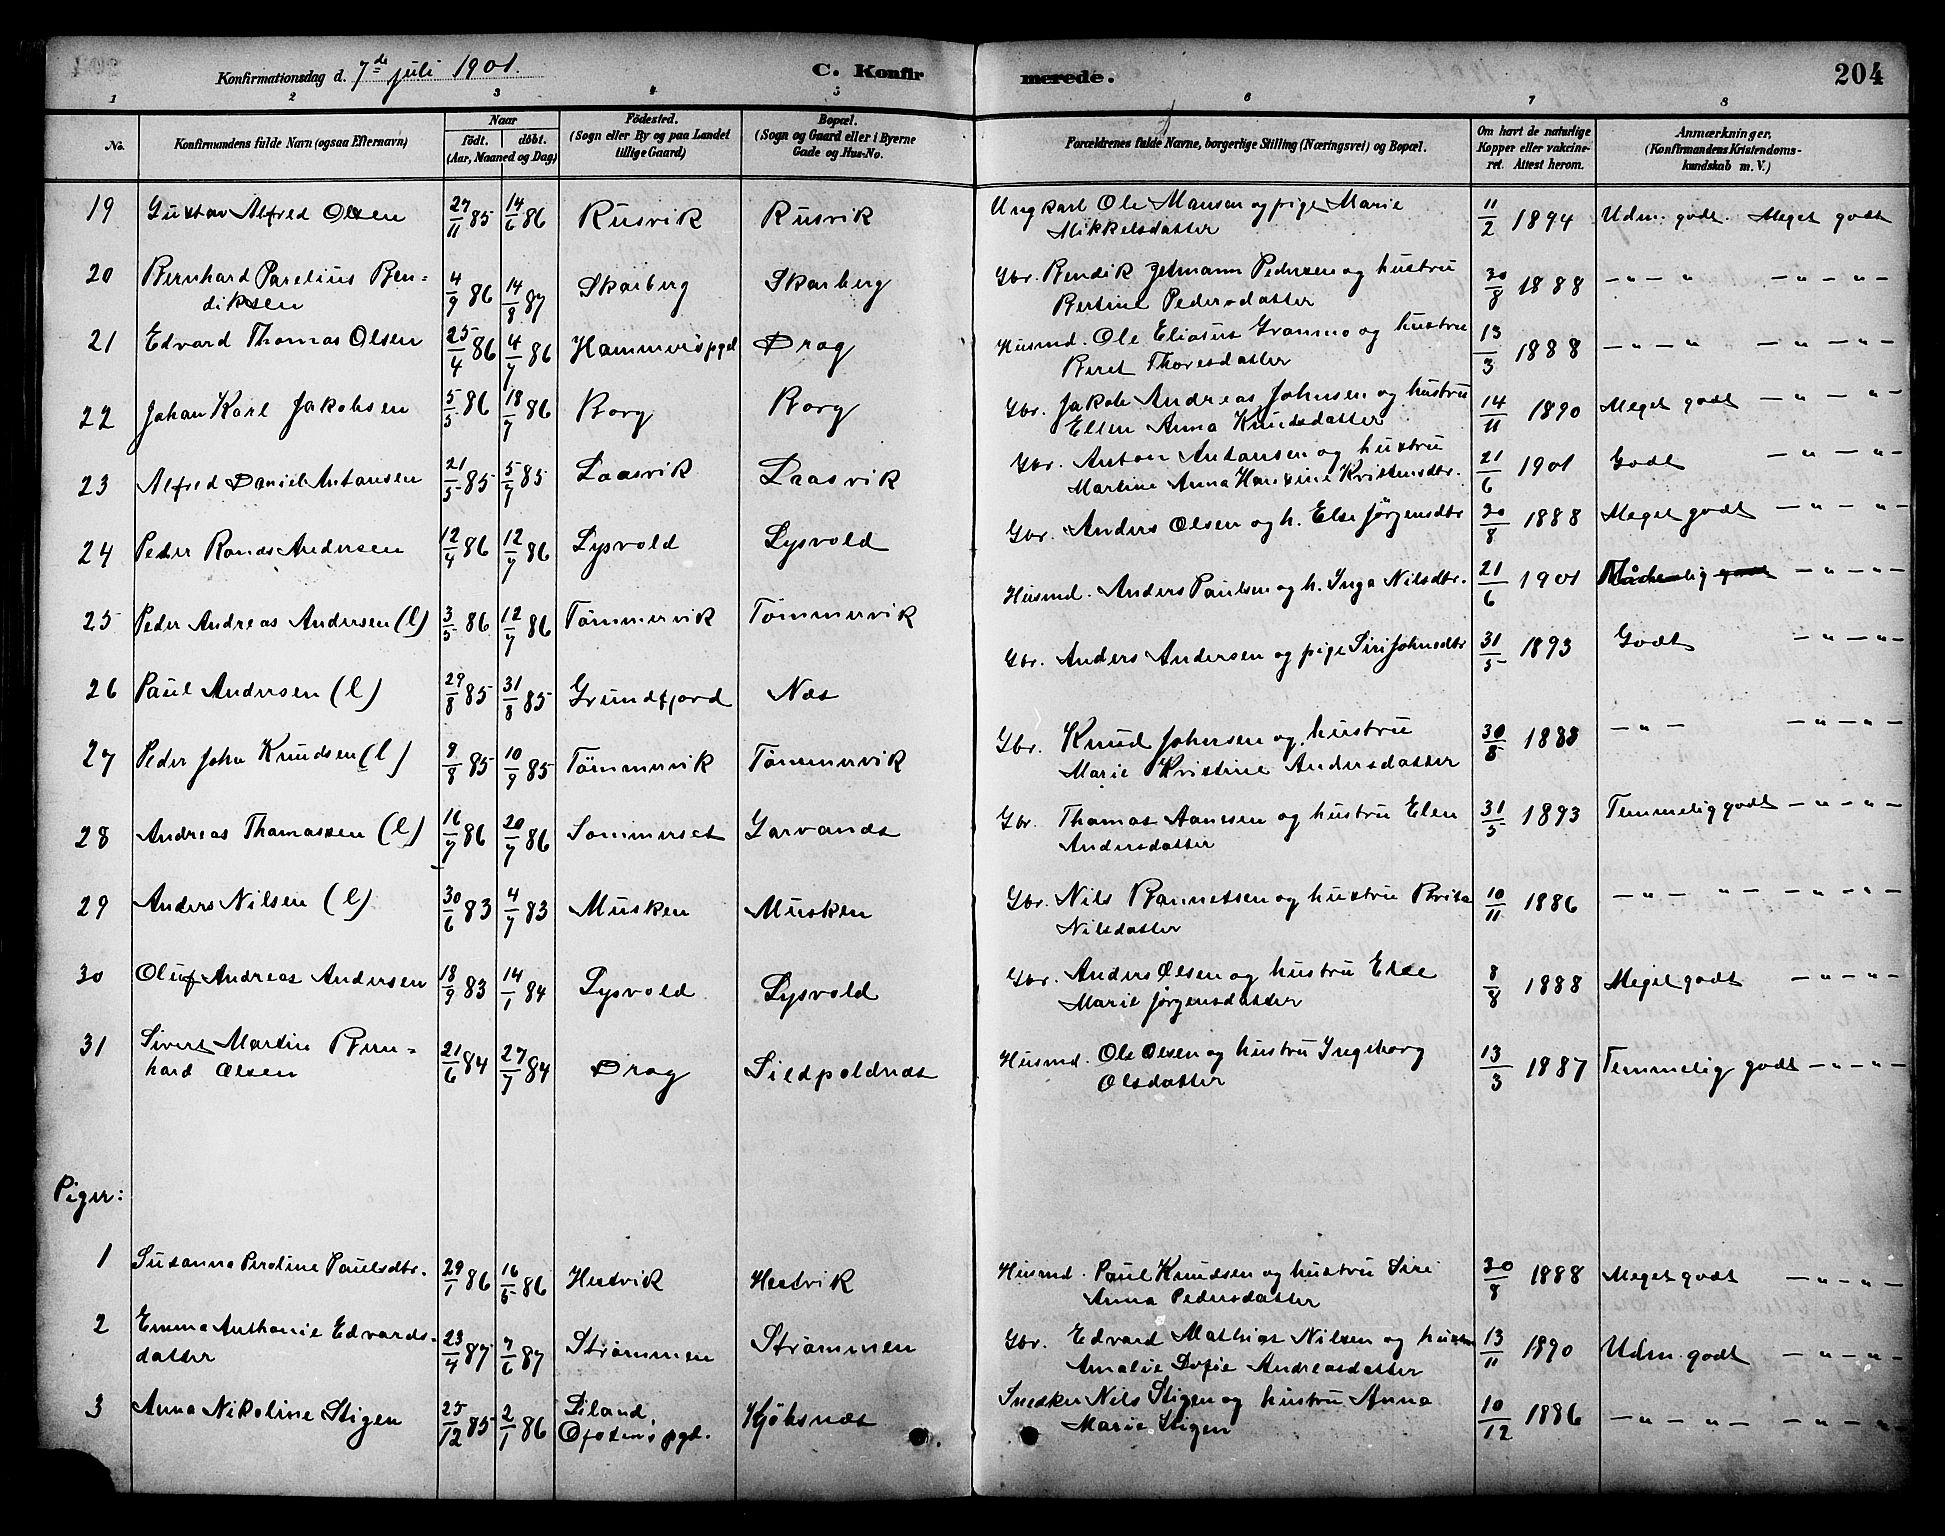 Konfirmationsdag d. 7de juli 1901. C. Konfir merede. 204
1 2 3 4 5 6 7 8
No. Konfirmandens fulde Navn (ogsaa Efternavn) Naar født. døbt. (Aar, Maaned og Dag) Fødested. (Sogn eller By og paa Landet tillige Gaard) Bopæl. (Sogn og Gaard eller i Byerne Gade og Hus-No. Forældrenes fulde Navne, borgerlige Stilling (Næringsvei) og Bopæl. Om havt de naturlige Kopper eller vakcineret. Attest herom. Anmærkninger, (Konfirmandens Kristendomskundskab m. V.)
19 Gustav Alfred Olsen 27/11 85 14/6 86 Rusvik Rusvik Ungkarl Ole Mansen og pige Marie 11/2 1894 Udm. godt. Meget godt
Mikkelsdatter
20 Bernhard Parelius Ben- 4/9 86 14/8 87 Skarberg Skarberg Gbr. Bendik Zetmann Pedersen og hustru 30/8 1888 — " — " — " — " —
diksen Bertine Pedersdatter
21 Edvard Thomas Olsen 25/4 86 4/7 86 Hammerøpgd Drag Husmd. Ole Eliasus Granmo og hustru 13/3 1888 — " — " — " — " —
Beret Thoresdatter
22 Johan Karl Jakobsen 5/5 86 18/7 86 Borg Borg Gbr. Jakob Andreas Johnsen og hustru 14/11 1890 Meget godt — " — " —
Ellen Anna Knudsdatter
23 Alfred Daniel Antonsen 21/5 85 5/7 85 Laasvik Laasvik Gbr. Anton Antonsen og hustru 21/6 1901 Godt — " — " —
Martine Anna Hansine Kristensdtr.
24 Peder Ronds Andersen 12/4 86 12/7 86 Lysvold Lysvold Gbr. Anders Olsen og h. Else Jørgensdtr 20/8 1888 Meget godt — " — " —
25 Peder Andreas Andersen (l) 3/5 86 12/7 86 Tømmervik Tømmervik Husmd. Anders Paulsen og h. Inga Nilsdtr. 21/6 1901 Mådelig godt — " — " —
26 Paul Andersen (l) 29/8 85 31/8 85 Grundfjord Næs Gbr. Anders Andersen og pige Siri Johnsdtr 31/5 1893 Godt — " — " —
27 Peder John Knudsen (l) 9/8 85 10/9 85 Tømmervik Tømmervik Gbr. Knud Johnsen og hustru 30/8 1888 — " — — " — " —
Marie Kristine Andersdatter
28 Andreas Thomassen (l) 16/7 86 20/7 86 Sommerset Garvands Gbr. Thomas Aanesen og hustru Elen 31/5 1893 Temmelig godt — " — " —
Andersdatter
29 Anders Nilsen (l) 30/6 83 4/7 83 Musken Musken Gbr. Nils Bannetsen og hustru Brita 10/11 1886 — " — " — — " — " —
Nilsdatter
30 Oluf Andreas Andersen 18/9 83 14/1 84 Lysvold Lysvold Gbr. Anders Olsen og hustru Else 8/8 1888 Meget godt — " — " —
Marie Jørgensdatter
31 Sivert Martin Bern- 21/6 84 27/7 84 Drag Sildpoldnæs Husmd. Ole Olsen og hustru Ingeborg 13/3 1887 Temmelig godt — " — " —
hard Olsen Olsdatter
Piger:
1 Susanna Peroline Paulsdtr. 29/1 86 16/5 86 Hestvik Hestvik Husmd. Paul Knudsen og hustru Siri 30/8 1888 Meget godt — " — " —
Anna Pedersdatter
2 Emma Anthonie Edvards- 23/4 87 7/6 87 Strømmen Strømmen Gbr. Edvard Mathias Nilsen og hustru 13/11 1890 Udm. godt — " — " —
datter Amalie Sofie Andreasdatter
3 Anna Nikoline Stigen 25/12 85 2/1 86 Liland, Kjøbsnæs Snedker Nils Stigen og hustru Anna 10/12 1886 — " — " — — " — " —
Ofotens pgd. Marie Stigen